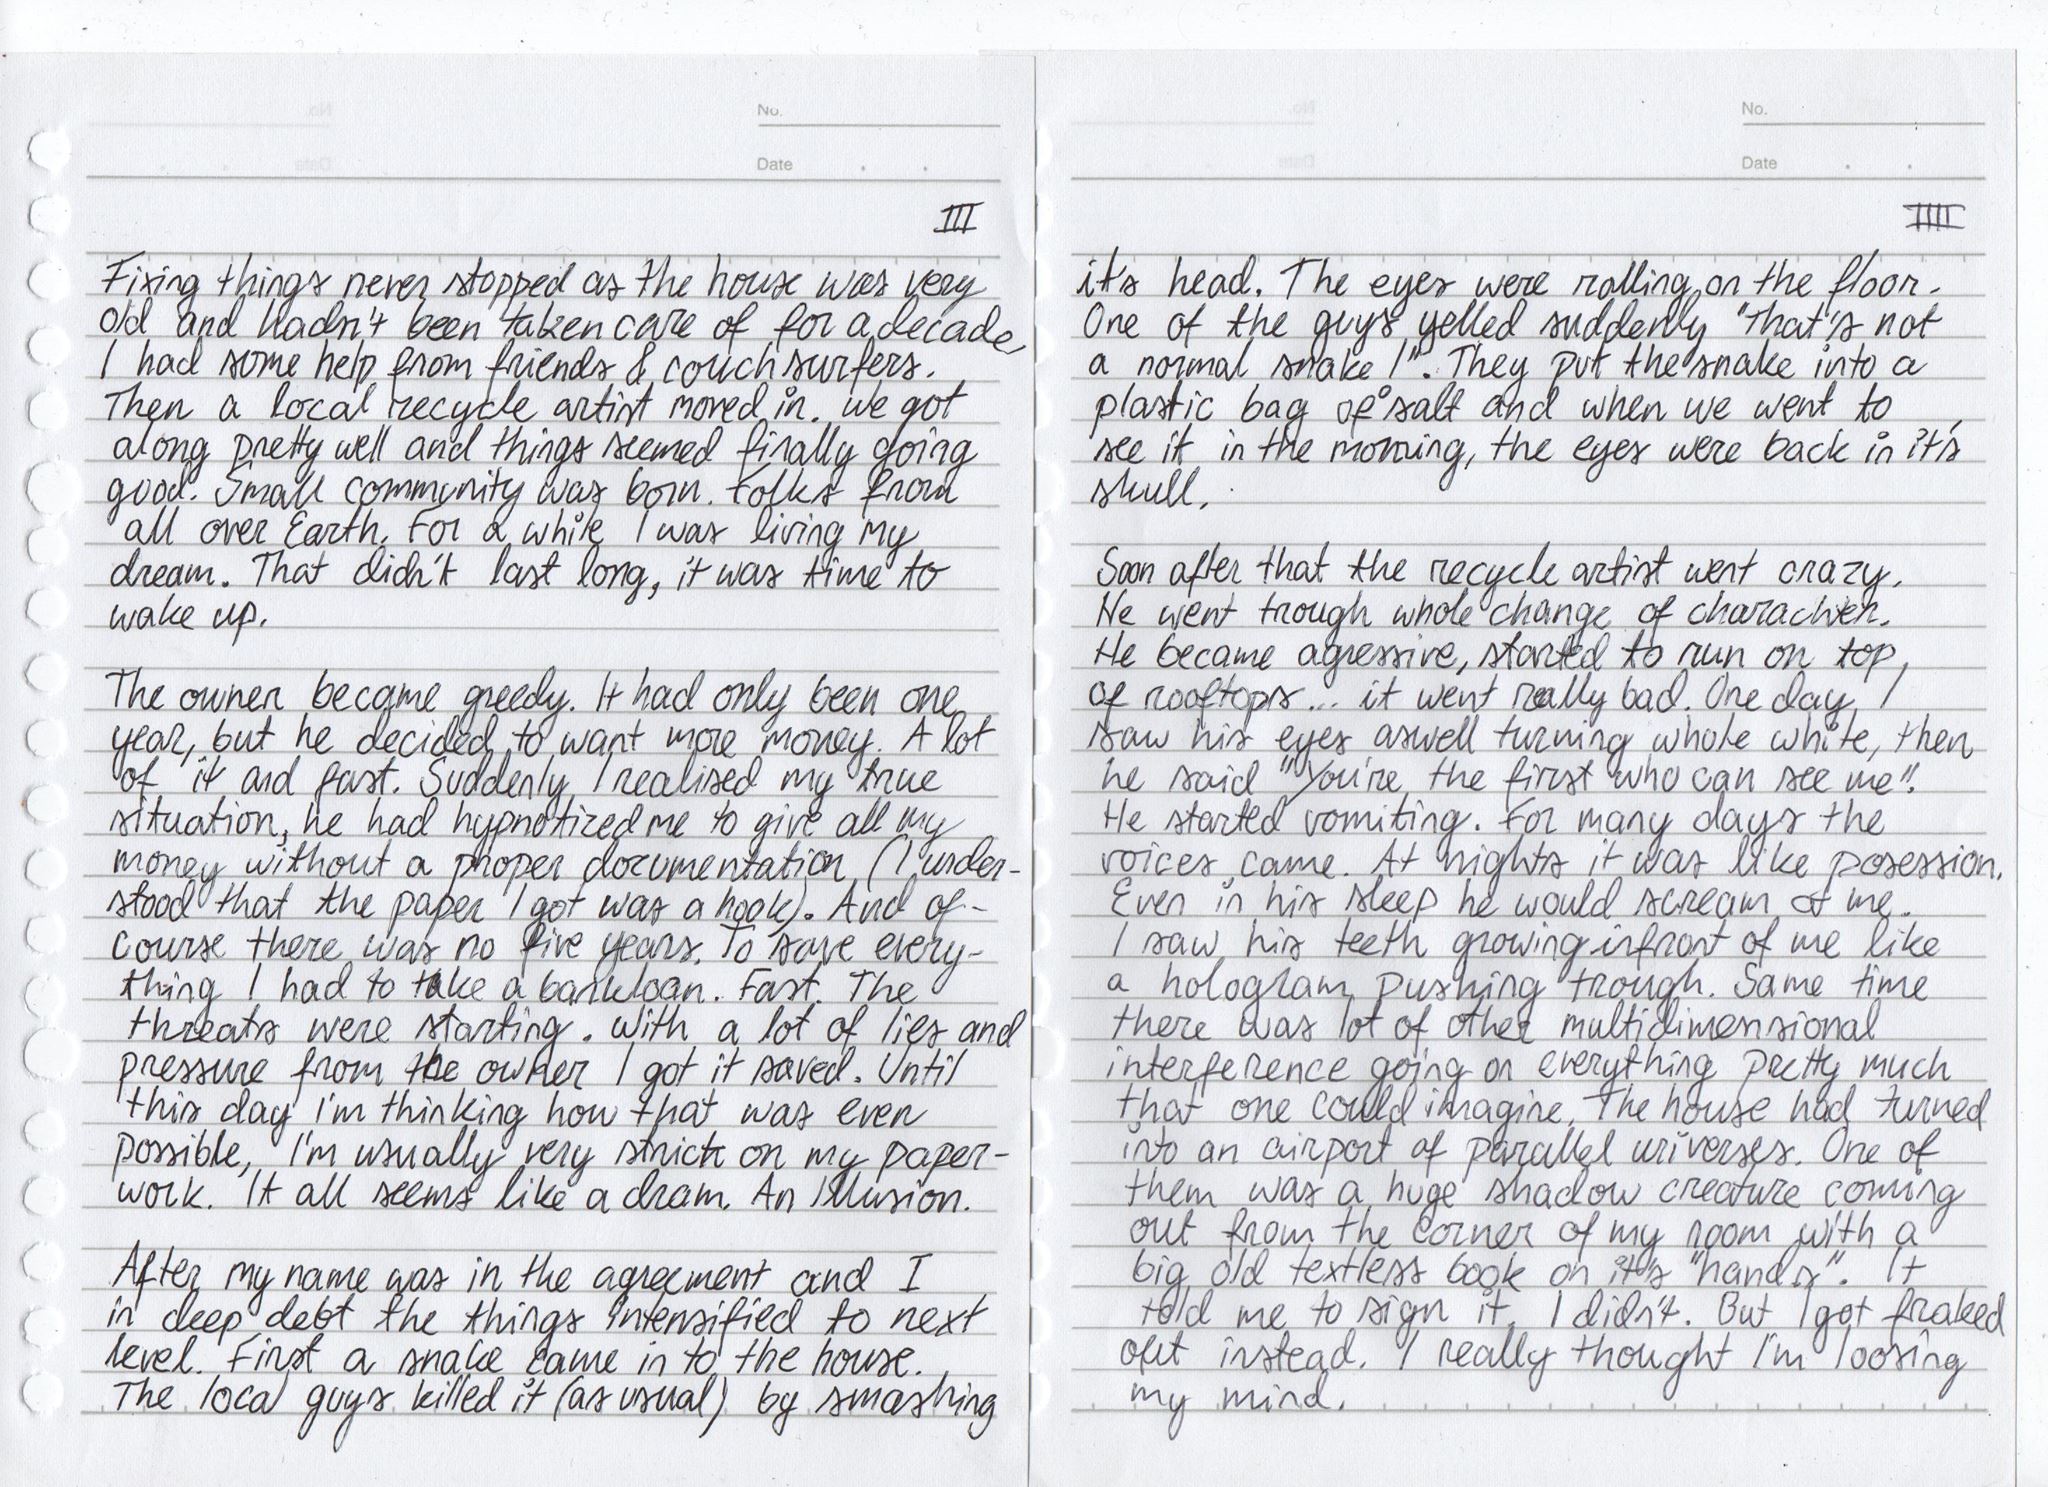 No.
Date . .
III
Fixing things never stopped as the house was very
old and hadn't been taken care of for a decade,
I had some help from friends & couchsurfers.
Then a local recycle artist moved in. We got
along pretty well and things seemed finally going
good. Small community was born. Folks from
all over Earth. For a while I was living my
dream. That didn't last long, it was time to
wake up.
The owner became greedy. It had only been one
year, but he decided to want more money. A lot
of it and fast. Suddenly I realised my true
situation, he had hypnotized me to give all my
money without a proper documentation (I under-
stood that the paper I got was a hook). And of-
course there was no five years. To save every-
thing I had to take a bankloan. Fast. The
threats were starting. With a lot of lies and
pressure from the owner I got it saved. Until
this day I'm thinking how that was even
possible, I'm usually very strict on my paper-
work. It all seems like a dram. An Illusion.
After my name was in the agreement and I
in deep debt the things intensified to next
level. First a snake came in to the house.
The local guys killed it (as usual) by smashing
No.
Date . .
IIII
it's head. The eyes were rolling on the floor.
One of the guys yelled suddenly "That's not
a normal snake!". They put the snake into a
plastic bag of salt and when we went to
see it in the morning, the eyes were back in it's
skull.
Soon after that the recycle artist went crazy.
He went trough whole change of charachter.
He became agressive, started to run on top
of rooftops... it went really bad. One day I
saw his eyes aswell turning whole white, then
he said "You're the first who can see me".
He started vomiting. For many days the
voices came. At nights it was like posession.
Even in his sleep he would scream at me.
I saw his teeth growing infront of me like
a hologram pushing trough. Same time
there was lot of other multidimensional
interference going on everything pretty much
that one could imagine. The house had turned
into an airport of parallel universes. One of
them was a huge shadow creature coming
out from the corner of my room with a
big old textless book on it's "hands". It
told me to sign it. I didn't. But I got fraked
out instead. I really thought I'm loosing
my mind.